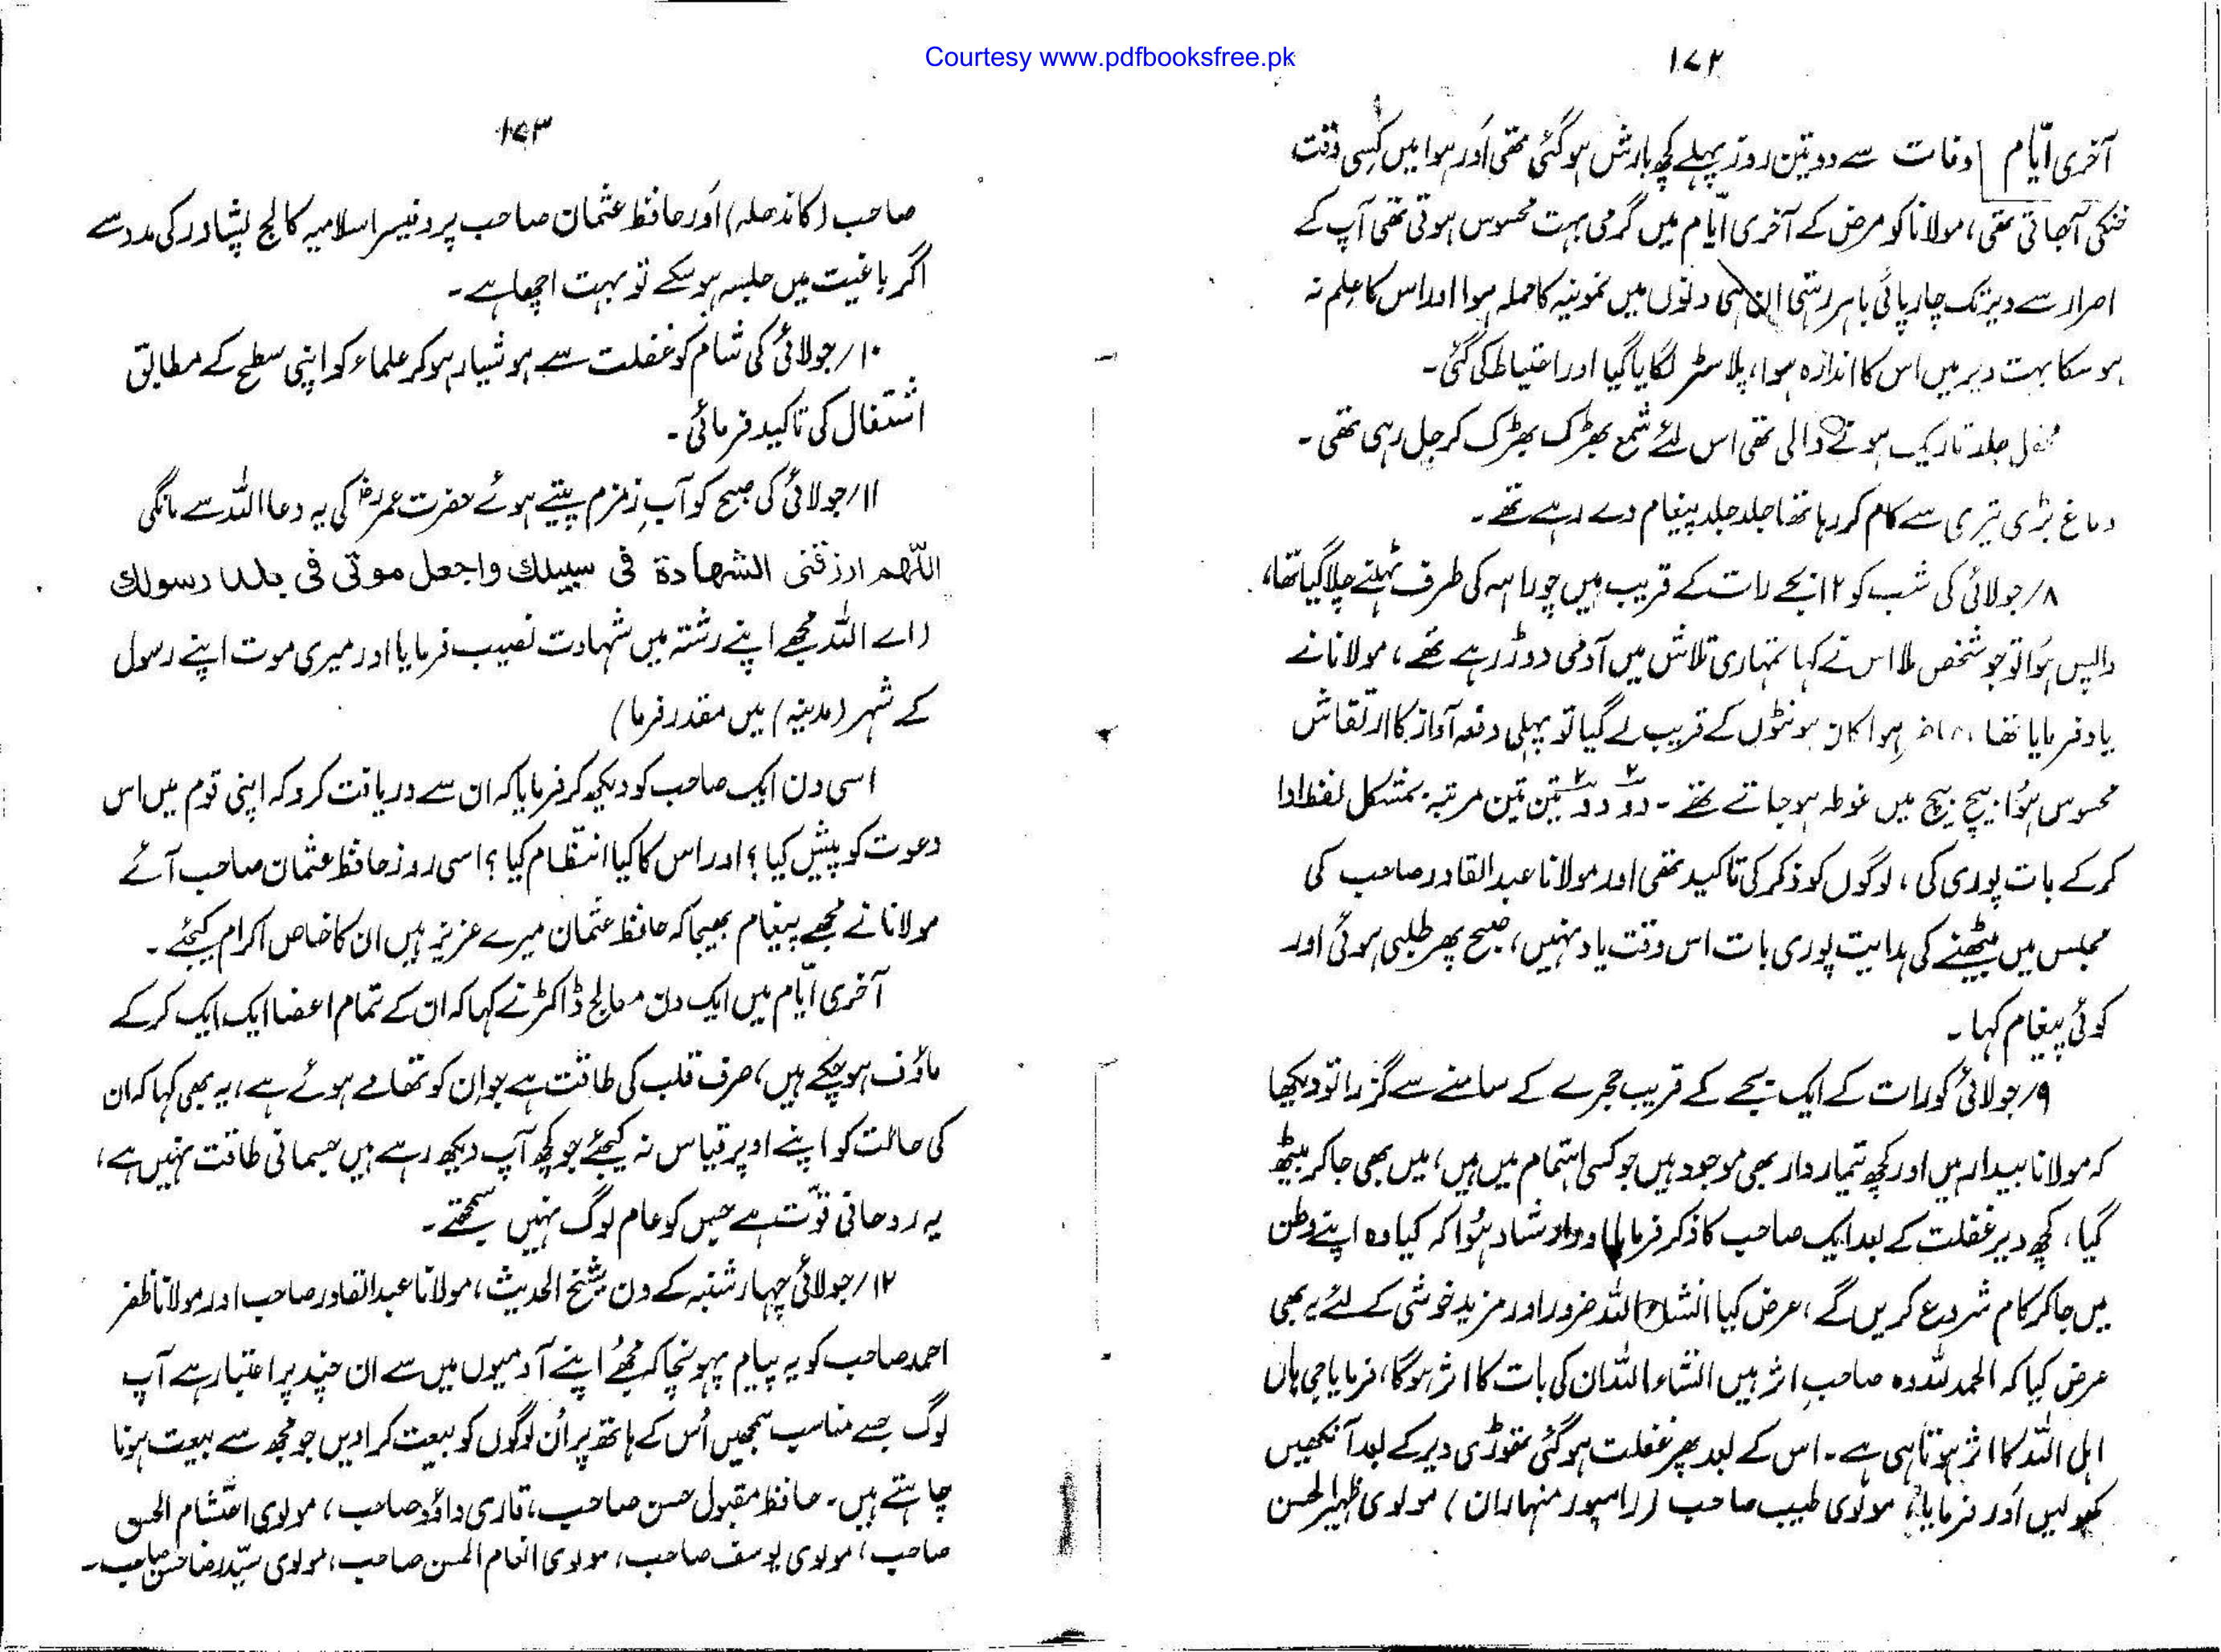 Courtesy www.pdfbooksfree.pk
۱۷۲
آخری ایّام وفات سے دو تین روز پہلے کچھ بارش ہو گئی تھی اَور ہوا میں کِسی وقت
خنکی آجاتی تھی، مولانا کو مرض کے آخری ایّام میں گرمی بہت محسوس ہوتی تھی آپ کے
اصرار سے دیر تک چارپائی باہر رہتی ان ہی دنوں میں نمونیہ کا حملہ ہوا اور اس کا عِلم نہ
ہو سکا بہت دیر میں اس کا اندازہ ہوا، پلاسٹر لگایا گیا اور احتیاط کی گئی۔
محفل جلد تاریک ہونے والی تھی اس لئے شمع بھڑک بھڑک کر جل رہی تھی۔
دماغ بڑی تیزی سے کام کر رہا تھا جلد جلد پیغام دے رہے تھے۔
۸/جولائی کی شب کو ۱۲ بجے رات کے قریب میں چوراہہ کی طرف ٹہلنے چلا گیا تھا،
واپس ہوَا تو جو شخص ملا اس نے کہا تمہاری تلاش میں آدمی دوڑ رہے تھے، مولانا نے
یاد فرمایا تھا، حاضر ہوا کان ہونٹوں کے قریب لے گیا تو پہلی دفعہ آواز کا ارتعاش
محسوس ہوُا بیچ بیچ میں غوطہ ہو جاتے تھے۔ دو دو تین تین مرتبہ بمشکل لفظ ادا
کر کے بات پوری کی، لوگوں کو ذکر کی تاکید تھی اور مولانا عبدالقادر صاحب کی
مجلس میں بیٹھنے کی ہدایت پوری بات اس وقت یاد نہیں، صبح پھر طلبی ہوئی اور
کوئی پیغام کہا۔
۹/جولائی کو رات کے ایک بجے کے قریب حجرے کے سامنے سے گزرا تو دیکھا
کہ مولانا بیدار ہیں اور کچھ تیماردار بھی موجود ہیں جو کسی اہتمام میں ہیں، میں بھی جا کر بیٹھ
گیا، کچھ دیر غفلت کے بعد ایک صاحب کا ذکر فرمایا اور ارشاد ہوُا کہ کیا وہ اپنے وطن
میں جا کر کام شروع کریں گے، عرض کیا انشاء اللہ ضرور اور مزید خوشی کے لئے یہ بھی
عرض کیا کہ الحمد للہ وہ صاحبِ اثر ہیں انشاء اللہ ان کی بات کا اثر ہو گا، فرمایا جی ہاں
اہل اللہ کا اثر ہوتا ہی ہے۔ اس کے بعد پھر غفلت ہو گئی تھوڑی دیر کے بعد آنکھیں
کھولیں اَور فرمایا، مولوی طیب صاحب (رامپور منہاران) مولوی ظہیر الحسن
۱۷۳
صاحب (کاندھلہ) اَور حافظ عثمان صاحب پروفیسر اسلامیہ کالج پشاور کی مدد سے
اگر باغپت میں جلسہ ہو سکے تو بہت اچھا ہے۔
۱۰/جولائی کی شام کو غفلت سے ہوشیار ہو کر علماء کو اپنی سطح کے مطابق
اشتغال کی تاکید فرمائی۔
۱۱/جولائی کی صبح کو آبِ زمزم پیتے ہوئے حضرت عمرؓ کی یہ دعا اللہ سے مانگی
اللّٰھم ارزقنی الشھادة فی سبیلك واجعل موتی فی بلد رسولك
(اے اللہ مجھے اپنے رشتہ میں شہادت نصیب فرمایا اور میری موت اپنے رسول
کے شہر (مدینہ) میں مقدر فرما)
اسی دن ایک صاحب کو دیکھ کر فرمایا کہ ان سے دریافت کرو کہ اپنی قوم میں اس
دعوت کو پیش کیا؟ اور اس کا کیا انتظام کیا؟ اسی روز حافظ عثمان صاحب آئے
مولانا نے مجھے پیغام بھیجا کہ حافظ عثمان میرے عزیز ہیں ان کا خاص اکرام کیجئے۔
آخری ایّام میں ایک دن معالج ڈاکٹر نے کہا کہ ان کے تمام اعضا ایک ایک کر کے
ماؤف ہو چکے ہیں، صرف قلب کی طاقت ہے جو ان کو تھامے ہوئے ہے، یہ بھی کہا کہ ان
کی حالت کو اپنے اوپر قیاس نہ کیجئے جو کچھ آپ دیکھ رہے ہیں جسمانی طاقت نہیں ہے،
یہ روحانی قوّت ہے جس کو عام لوگ نہیں سمجھتے۔
۱۲/جولائی چہار شنبہ کے دن شیخ الحدیث، مولانا عبدالقادر صاحب اور مولانا ظفر
احمد صاحب کو یہ پیام پہونچا کہ مجھُے اپنے آدمیوں میں سے ان چند پر اعتبار ہے آپ
لوگ جسے مناسب سمجھیں اُس کے ہاتھ پر اُن لوگوں کو بیعت کرادیں جو مجھ سے بیعت ہونا
چاہتے ہیں۔ حافظ مقبول حسن صاحب، قاری داؤد صاحب، مولوی احتشام الحسن
صاحب، مولوی یوسف صاحب، مولوی انعام الحسن صاحب، مولوی سیّد رضا حسن صاحب۔